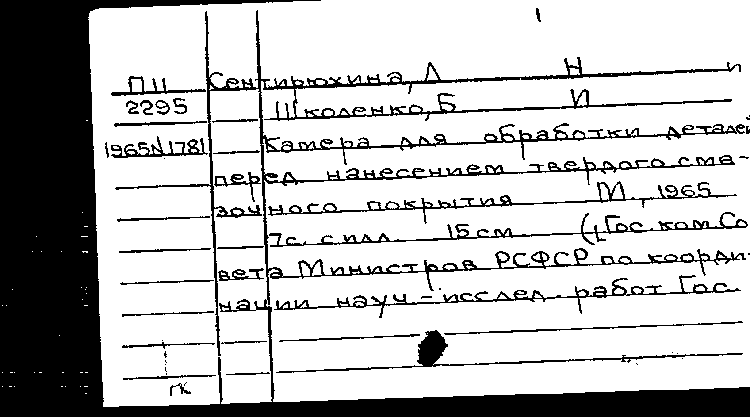 1
П11 Сентирюхина, Л Н и
2295 Школенко, Б И
1965N1781 Камера для обработки деталей
перед нанесением твердого сма-
зочного покрытия М., 1965
7с. с илл. 15 см. ([Гос. ком. Со
вета Министров РСФСР по коорди-
нации науч-исслед. работ Гос.
ГК